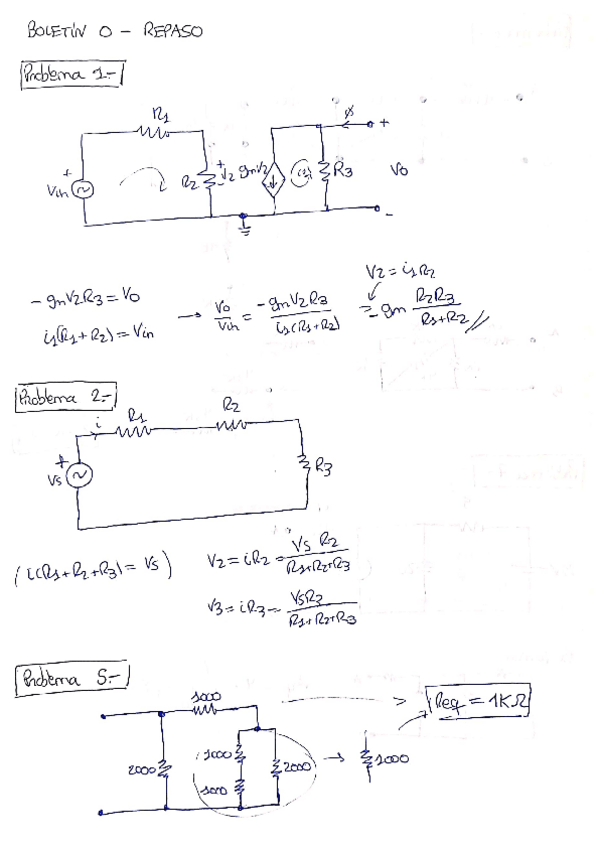 BOLETÍN 0 - REPASO
Problema 1.-
R1
+ Vin
R2
+ V2 -
gmV2
R3
+ Vo -
V2 = i1R2
-gmV2R3 = Vo
i1(R1+R2) = Vin
→ Vo/Vin = -gmV2R3 / i1(R1+R2) = -gm R2R3 / R1+R2 //
Problema 2.-
i R1 R2
+ Vs
R3
(i(R1+R2+R3) = Vs)
V2 = iR2 = Vs R2 / R1+R2+R3
V3 = iR3 = VsR3 / R1+R2+R3
Problema 5.-
1000
2000
1000
1000
2000
→ 1000
Req = 1KΩ